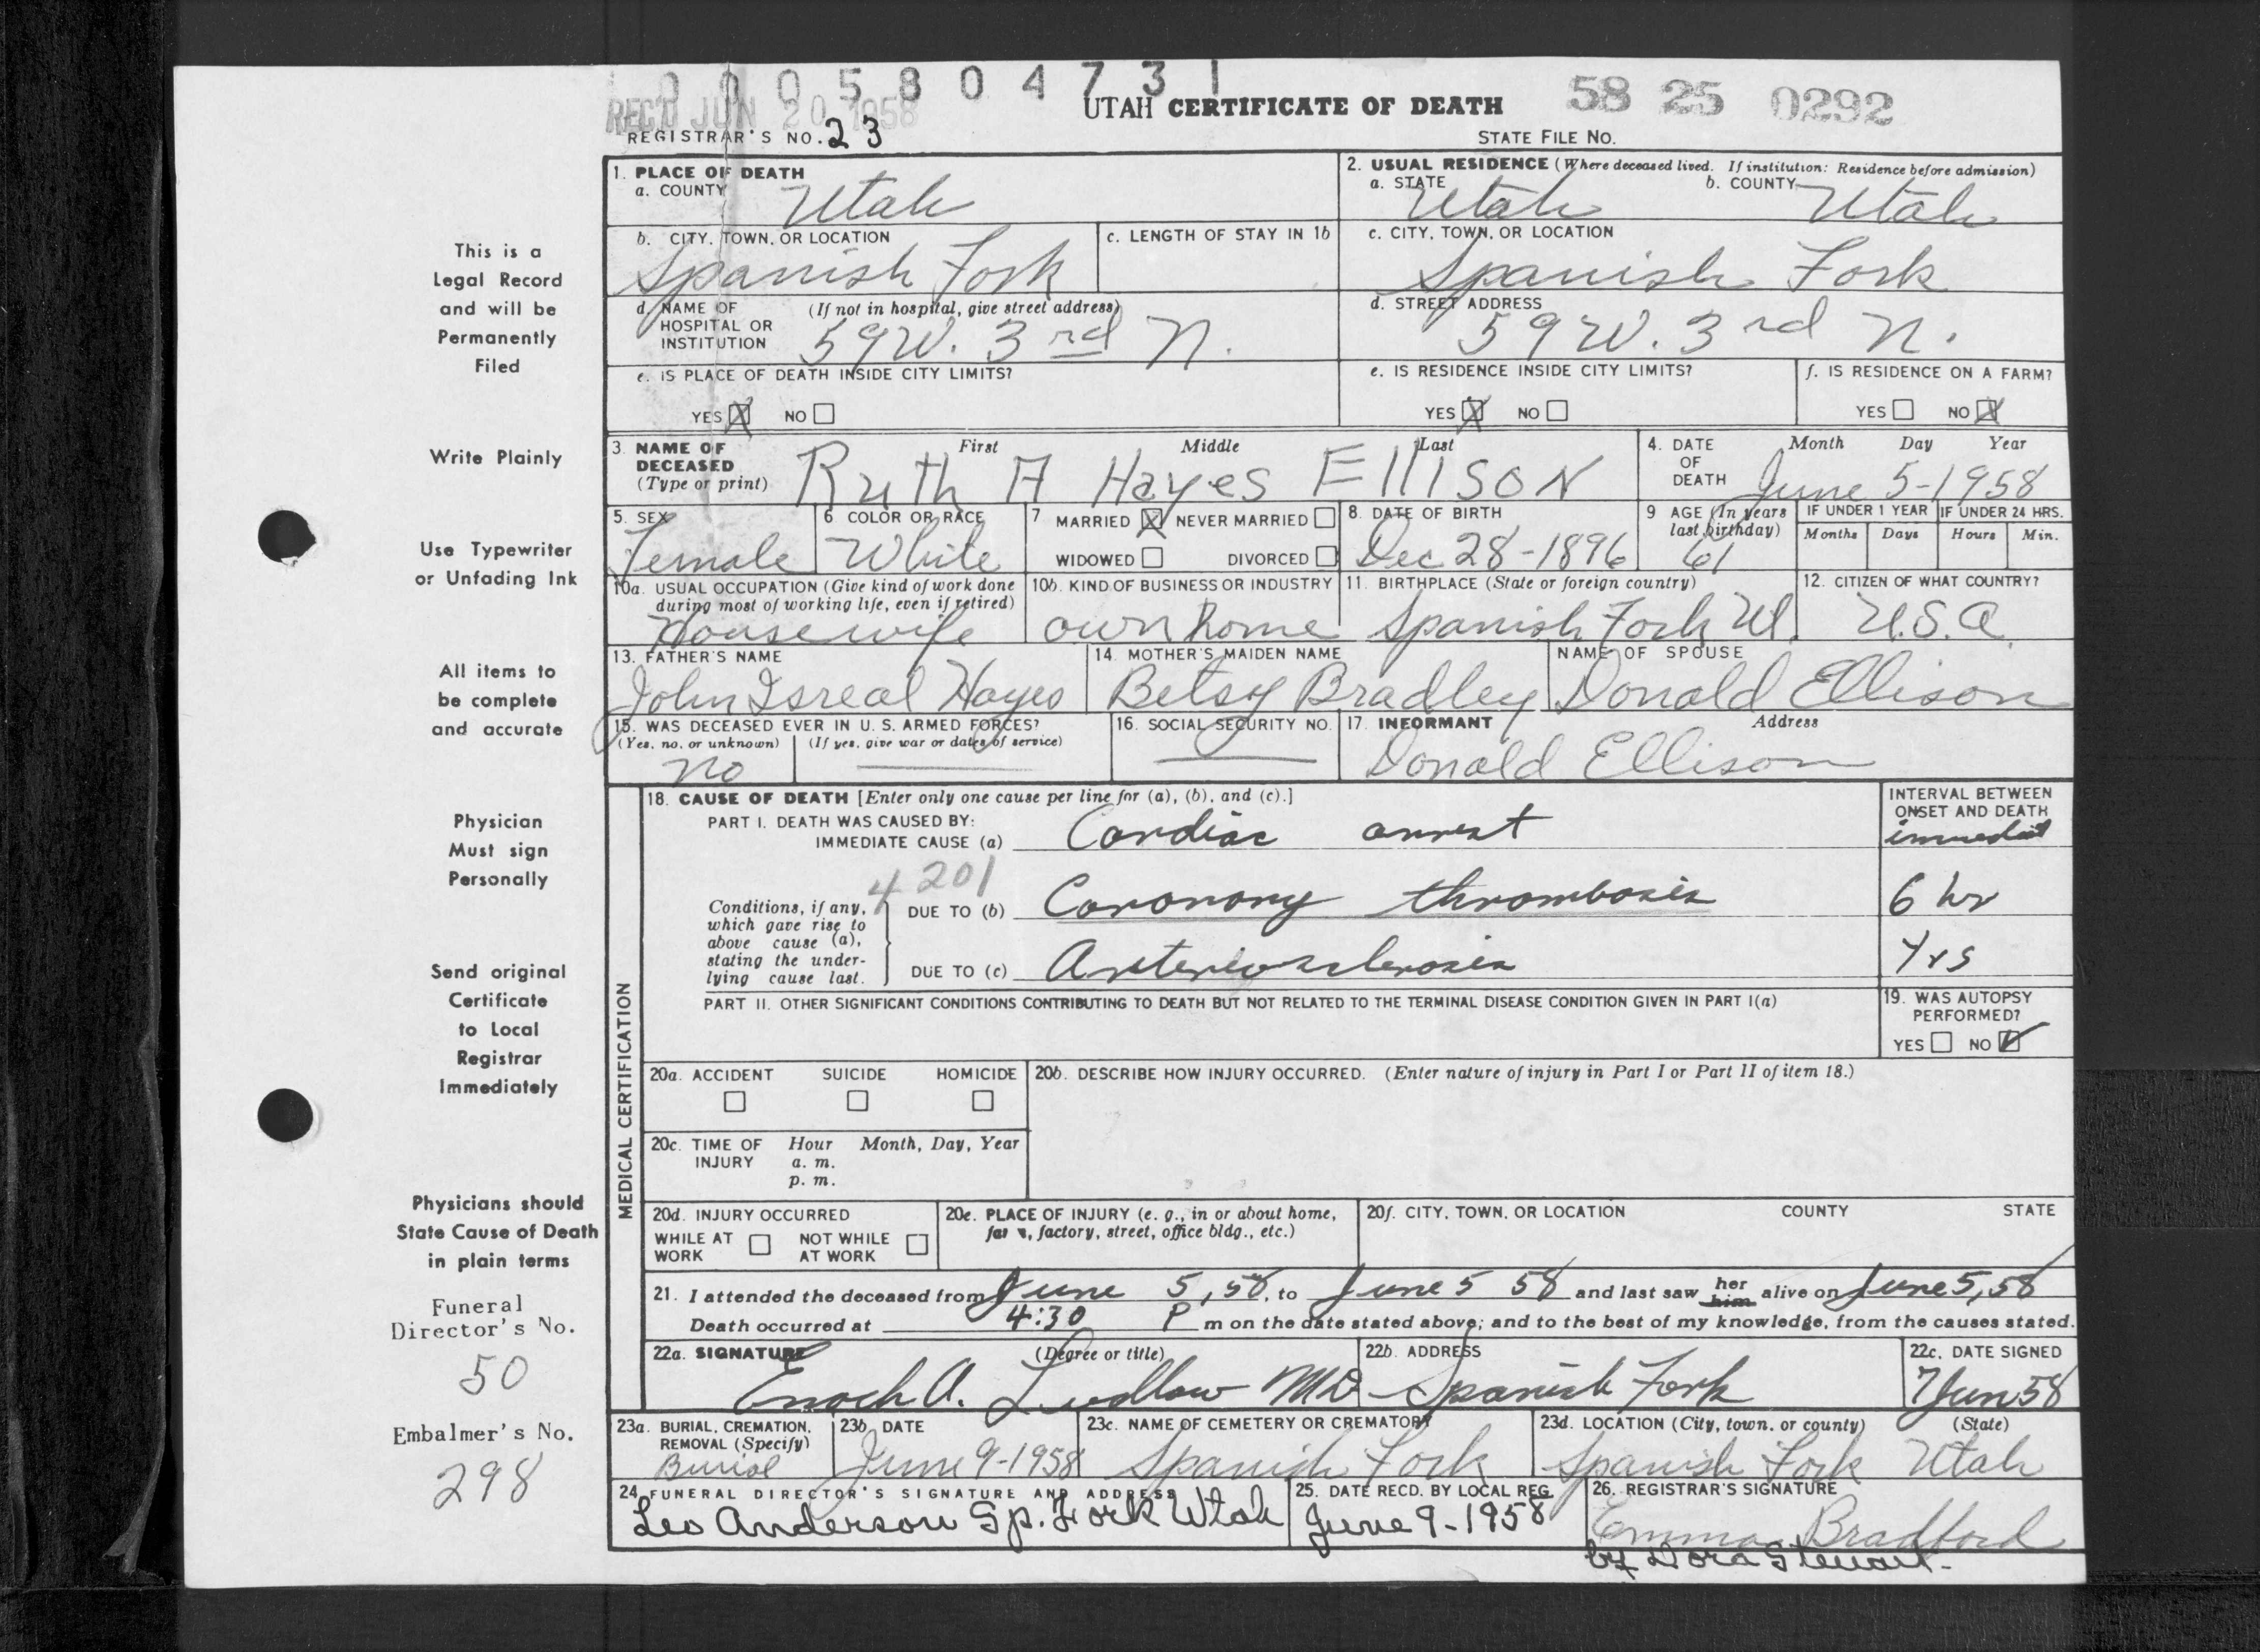 0 0 0 5 8 0 4 7 3 1
REC'D JUN 20 1958
UTAH CERTIFICATE OF DEATH
58 25 0292
REGISTRAR'S NO. 23
STATE FILE NO.
1. PLACE OF DEATH
a. COUNTY Utah
2. USUAL RESIDENCE (Where deceased lived. If institution: Residence before admission)
a. STATE Utah b. COUNTY Utah
b. CITY, TOWN, OR LOCATION
Spanish Fork
c. LENGTH OF STAY IN 1b
c. CITY, TOWN, OR LOCATION
Spanish Fork
d. NAME OF HOSPITAL OR INSTITUTION (If not in hospital, give street address)
59 W. 3rd N.
d. STREET ADDRESS
59 W. 3rd N.
e. IS PLACE OF DEATH INSIDE CITY LIMITS?
YES X NO
e. IS RESIDENCE INSIDE CITY LIMITS?
YES X NO
f. IS RESIDENCE ON A FARM?
YES NO X
3. NAME OF DECEASED (Type or print)
First Middle Last
Ruth A Hayes Ellison
4. DATE OF DEATH Month Day Year
June 5-1958
5. SEX
Female
6 COLOR OR RACE
White
7 MARRIED X NEVER MARRIED
WIDOWED DIVORCED
8. DATE OF BIRTH
Dec 28-1896
9 AGE (In years last birthday)
61
IF UNDER 1 YEAR IF UNDER 24 HRS.
Months Days Hours Min.
10a. USUAL OCCUPATION (Give kind of work done during most of working life, even if retired)
Housewife
10b. KIND OF BUSINESS OR INDUSTRY
own home
11. BIRTHPLACE (State or foreign country)
Spanish Fork Ut.
12. CITIZEN OF WHAT COUNTRY?
U.S.A.
13. FATHER'S NAME
John Isreal Hayes
14. MOTHER'S MAIDEN NAME
Betsy Bradley
NAME OF SPOUSE
Donald Ellison
15. WAS DECEASED EVER IN U. S. ARMED FORCES?
(Yes, no, or unknown) (If yes, give war or dates of service)
no
16. SOCIAL SECURITY NO.
17. INFORMANT Address
Donald Ellison
MEDICAL CERTIFICATION
18. CAUSE OF DEATH [Enter only one cause per line for (a), (b), and (c).]
INTERVAL BETWEEN ONSET AND DEATH
PART I. DEATH WAS CAUSED BY:
IMMEDIATE CAUSE (a) Cardiac arrest immediat
4201
Conditions, if any, which gave rise to above cause (a), stating the underlying cause last.
DUE TO (b) Coronary thrombosis 6 hr
DUE TO (c) Arteriosclerosis Yrs
PART II. OTHER SIGNIFICANT CONDITIONS CONTRIBUTING TO DEATH BUT NOT RELATED TO THE TERMINAL DISEASE CONDITION GIVEN IN PART I(a)
19. WAS AUTOPSY PERFORMED?
YES NO ✓
20a. ACCIDENT SUICIDE HOMICIDE
20b. DESCRIBE HOW INJURY OCCURRED. (Enter nature of injury in Part I or Part II of item 18.)
20c. TIME OF INJURY Hour Month, Day, Year
a. m.
p. m.
20d. INJURY OCCURRED
WHILE AT WORK NOT WHILE AT WORK
20e. PLACE OF INJURY (e. g., in or about home, farm, factory, street, office bldg., etc.)
20f. CITY, TOWN, OR LOCATION COUNTY STATE
21. I attended the deceased from June 5, 58, to June 5 58 and last saw her him alive on June 5, 58
Death occurred at 4:30 P m on the date stated above; and to the best of my knowledge, from the causes stated.
22a. SIGNATURE (Degree or title)
Enoch A. Ludlow MD
22b. ADDRESS
Spanish Fork
22c. DATE SIGNED
7 Jun 58
23a. BURIAL, CREMATION, REMOVAL (Specify)
Burial
23b. DATE
June 9-1958
23c. NAME OF CEMETERY OR CREMATORY
Spanish Fork
23d. LOCATION (City, town, or county) (State)
Spanish Fork Utah
24 FUNERAL DIRECTOR'S SIGNATURE AND ADDRESS
Leo Anderson Sp. Fork Utah
25. DATE RECD. BY LOCAL REG.
June 9-1958
26. REGISTRAR'S SIGNATURE
Emma Bradford
by Dora Stewart
This is a
Legal Record
and will be
Permanently
Filed
Write Plainly
Use Typewriter
or Unfading Ink
All items to
be complete
and accurate
Physician
Must sign
Personally
Send original
Certificate
to Local
Registrar
Immediately
Physicians should
State Cause of Death
in plain terms
Funeral
Director's No.
50
Embalmer's No.
298